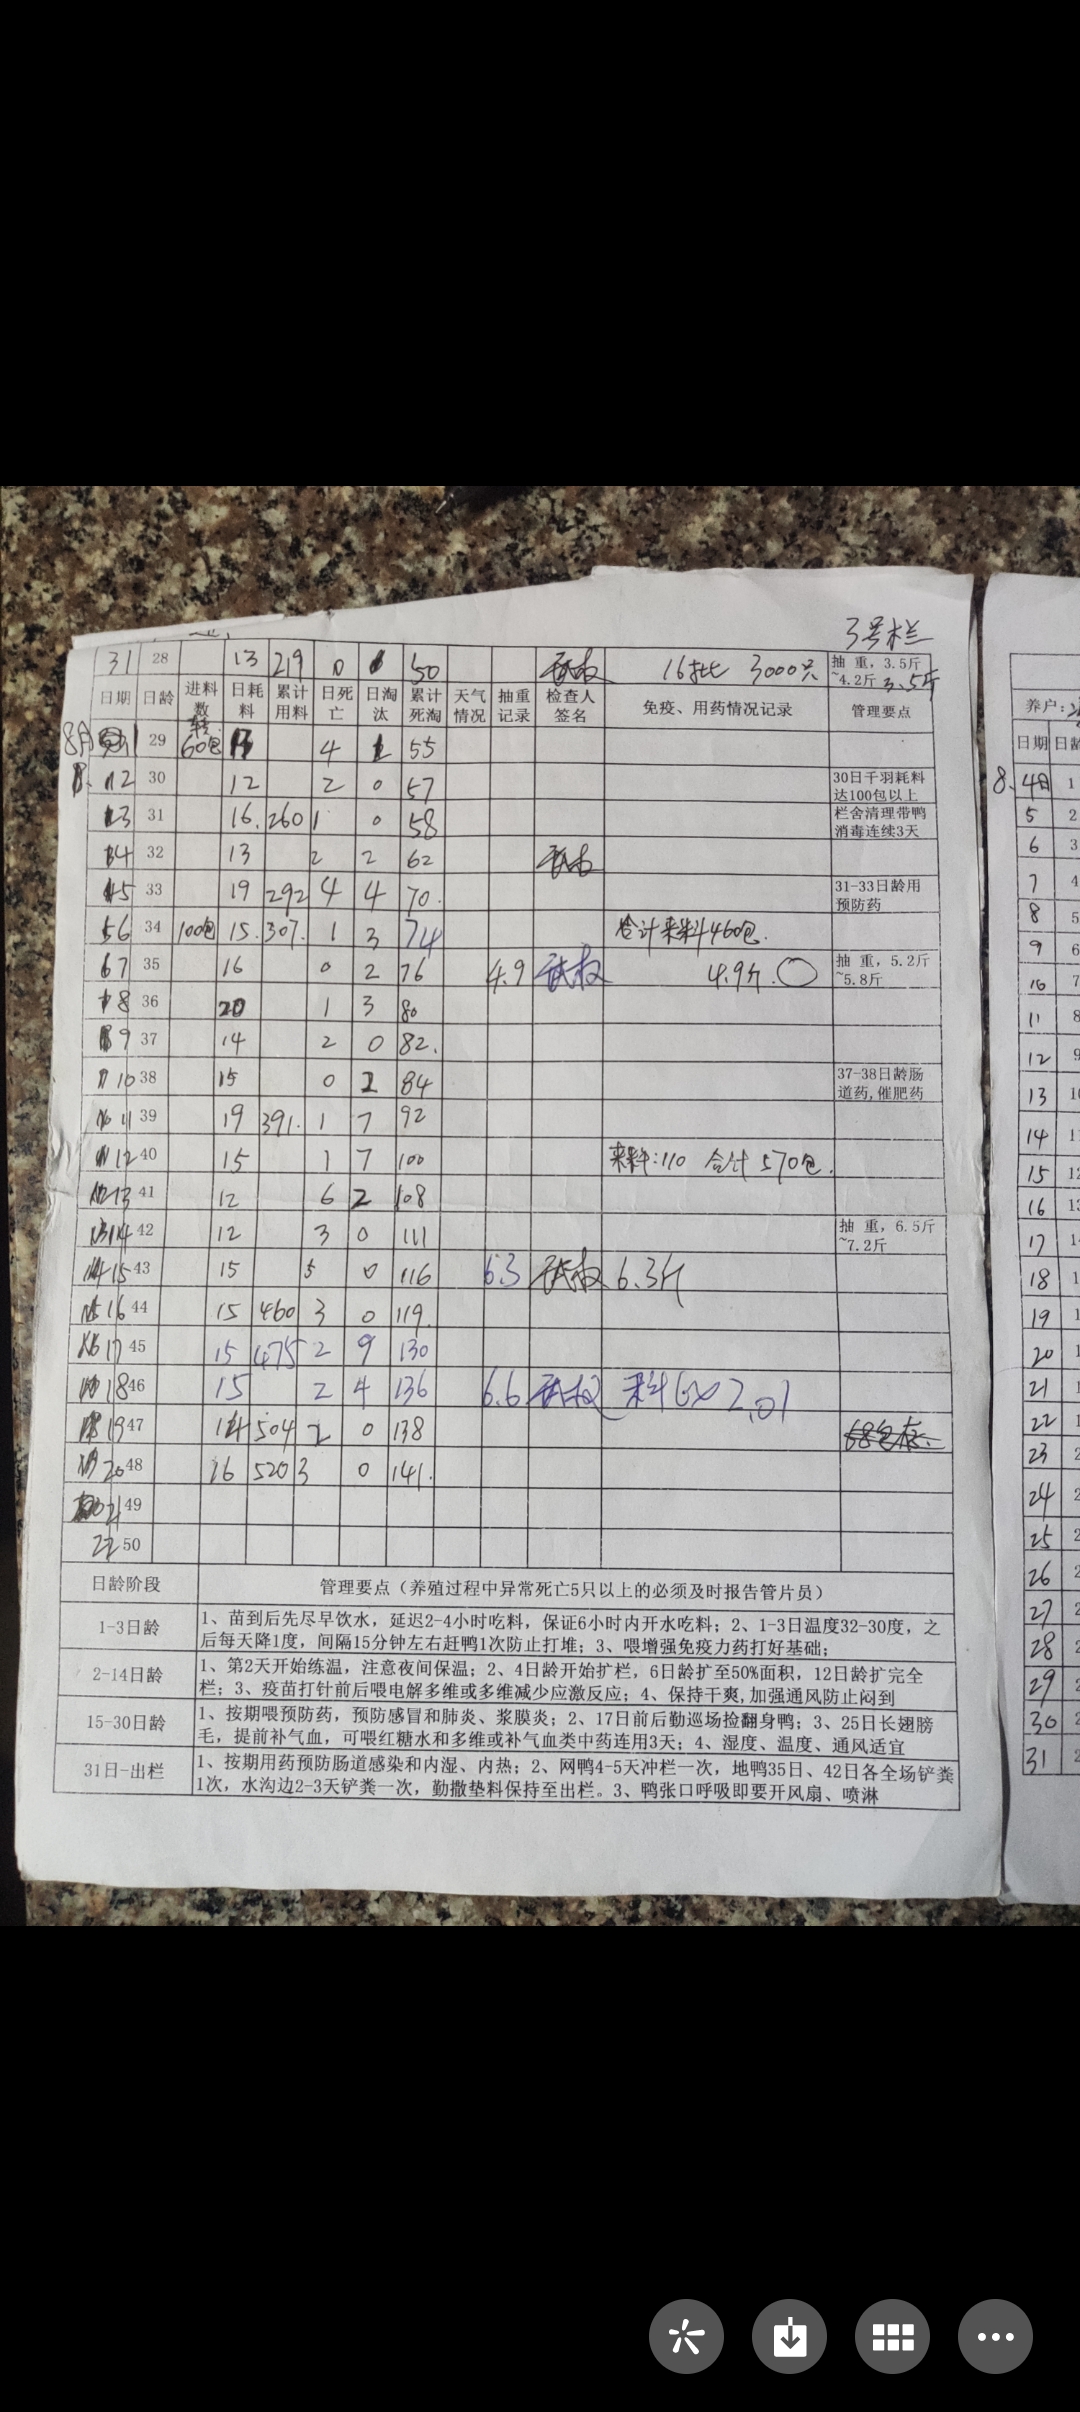 3号栏
31 28 13 219 0 50 16批 3000只 抽 重，3.5斤~4.2斤 3.5斤
日期 日龄 进料数 日耗料 累计用料 日死亡 日淘汰 累计死淘 天气情况 抽重记录 检查人签名 免疫、用药情况记录 管理要点
8月 1 29 60包 4 1 55
2 30 12 2 0 57 30日千羽耗料达100包以上
3 31 16. 260 1 0 58 栏舍清理带鸭消毒连续3天
4 32 13 2 2 62
5 33 19 292 4 4 70. 31-33日龄用预防药
6 34 100包 15. 307. 1 3 74 合计来料460包.
7 35 16 0 2 76 4.9 4.9斤. 抽 重，5.2斤~5.8斤
8 36 20 1 3 80
9 37 14 2 0 82.
10 38 15 0 2 84 37-38日龄肠道药,催肥药
11 39 19 391. 1 7 92
12 40 15 1 7 100 来料:110 合计 570包.
13 41 12 6 2 108
14 42 12 3 0 111 抽 重，6.5斤~7.2斤
15 43 15 5 0 116 6.3 6.3斤
16 44 15 460 3 0 119.
17 45 15 475 2 9 130
18 46 15 2 4 136 6.6 2.01
19 47 14 504 2 0 138
20 48 16 520 3 0 141.
21 49
22 50
日龄阶段 管理要点（养殖过程中异常死亡5只以上的必须及时报告管片员）
1-3日龄 1、苗到后先尽早饮水，延迟2-4小时吃料，保证6小时内开水吃料；2、1-3日温度32-30度，之
后每天降1度，间隔15分钟左右赶鸭1次防止打堆；3、喂增强免疫力药打好基础；
2-14日龄 1、第2天开始练温，注意夜间保温；2、4日龄开始扩栏，6日龄扩至50%面积，12日龄扩完全
栏；3、疫苗打针前后喂电解多维或多维减少应激反应；4、保持干爽,加强通风防止闷到
15-30日龄 1、按期喂预防药，预防感冒和肺炎、浆膜炎；2、17日前后勤巡场捡翻身鸭；3、25日长翅膀
毛，提前补气血，可喂红糖水和多维或补气血类中药连用3天；4、湿度、温度、通风适宜
31日-出栏 1、按期用药预防肠道感染和内湿、内热；2、网鸭4-5天冲栏一次，地鸭35日、42日各全场铲粪
1次，水沟边2-3天铲粪一次，勤撒垫料保持至出栏。3、鸭张口呼吸即要开风扇、喷淋
养户:
日期 日龄
8. 4日 1
5 2
6 3
7 4
8 5
9 6
10 7
11 8
12 9
13
14
15
16
17
18
19
20
21
22
23
24
25
26
27
28
29
30
31